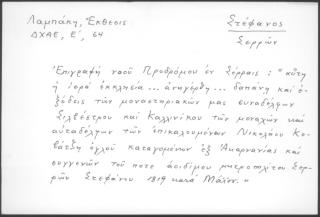 Λαμπάκη, Ἔκθεσις
ΔΧΑΕ, Ε΄, 64
Στέφανος
Σερρῶν
Ἐπιγραφὴ ναοῦ Προδρόμου ἐν Σέρραις: "αὕτη
ἡ ἱερὰ ἐκκλησία... ἀνηγέρθη.. δαπάνῃ καὶ ἐ-
ξόδοις τῶν μοναστηριακῶν μας συναδέλφων
Σιλβέστρου καὶ Καλλινίκου τῶν μοναχῶν καὶ
αὐταδέλφων τῶν ἐπικαλουμένων Νικολάου Κο-
βάτζη ὀγλοῦ καταγομένων ἐξ Ἀκαρνανίας καὶ
συγγενῶν τοῦ ποτε ἀοιδίμου μητροπολίτου Σερ-
ρῶν Στεφάνου. 1819 κατὰ Μάϊον."